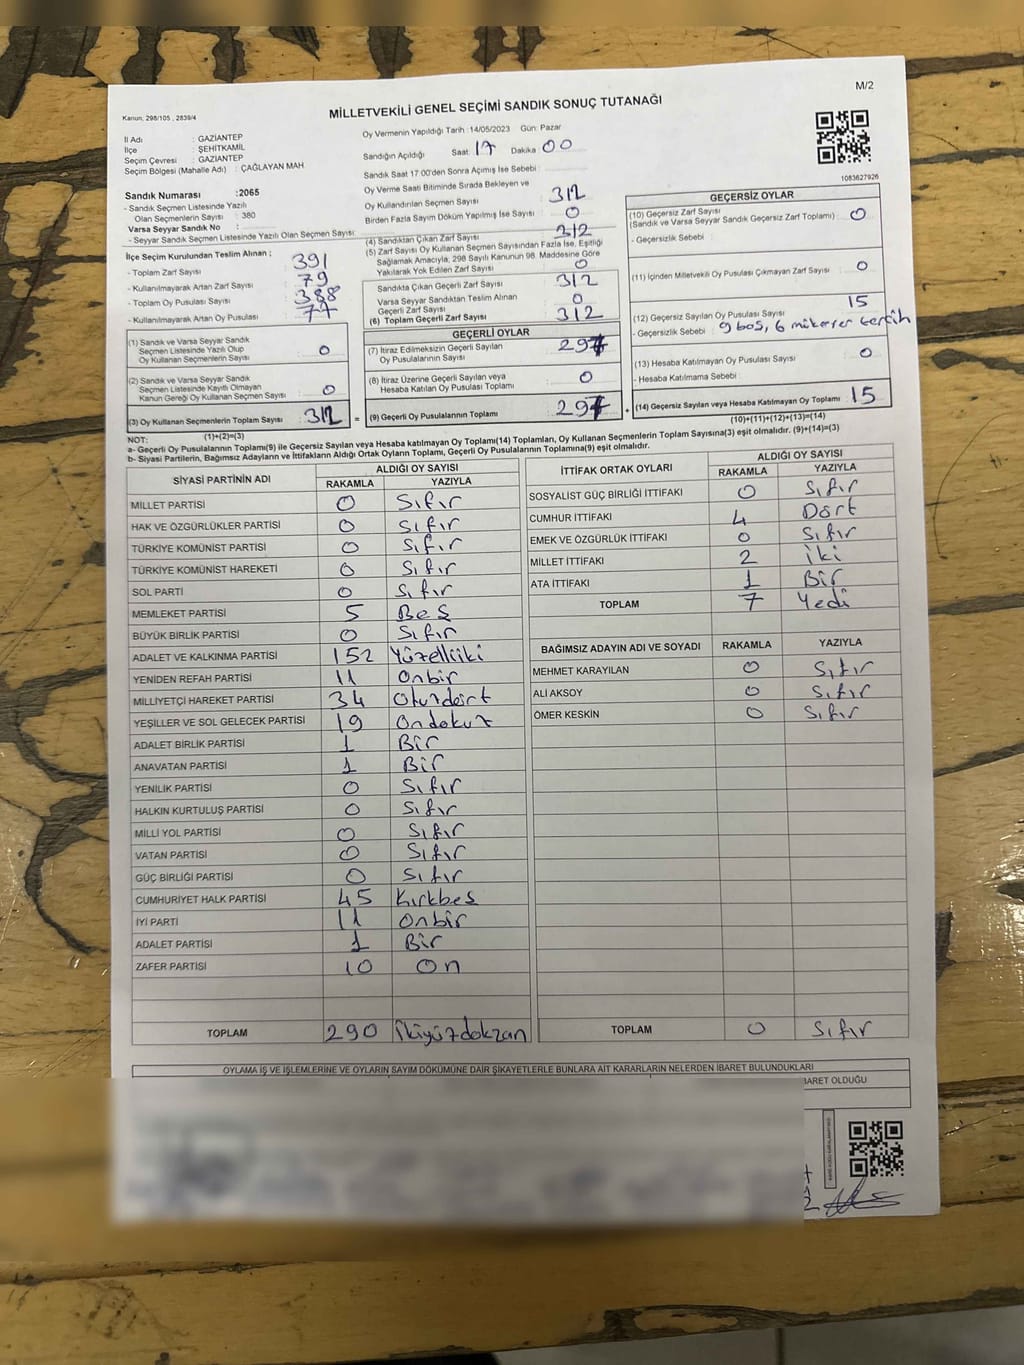 M/2
MİLLETVEKİLİ GENEL SEÇİMİ SANDIK SONUÇ TUTANAĞI
Kanun, 298/105 , 2839/4
İl Adı : GAZİANTEP
İlçe : ŞEHİTKAMİL
Seçim Çevresi : GAZİANTEP
Seçim Bölgesi (Mahalle Adı) : ÇAĞLAYAN MAH
Sandık Numarası :2065
- Sandık Seçmen Listesinde Yazılı
Olan Seçmenlerin Sayısı : 380
Varsa Seyyar Sandık No :
- Seyyar Sandık Seçmen Listesinde Yazılı Olan Seçmen Sayısı:
İlçe Seçim Kurulundan Teslim Alınan ;
- Toplam Zarf Sayısı : 391
- Kullanılmayarak Artan Zarf Sayısı : 79
- Toplam Oy Pusulası Sayısı : 388
- Kullanılmayarak Artan Oy Pusulası : 77
(1) Sandık ve Varsa Seyyar Sandık
Seçmen Listesinde Yazılı Olup
Oy Kullanan Seçmenlerin Sayısı 0
(2) Sandık ve Varsa Seyyar Sandık
Seçmen Listesinde Kayıtlı Olmayan
Kanun Gereği Oy Kullanan Seçmen Sayısı 0
(3) Oy Kullanan Seçmenlerin Toplam Sayısı 312 =
(1)+(2)=(3)
Oy Vermenin Yapıldığı Tarih :14/05/2023 Gün: Pazar
Sandığın Açıldığı Saat 17 Dakika 00
Sandık Saat 17.00'den Sonra Açımış İse Sebebi :
Oy Verme Saati Bitiminde Sırada Bekleyen ve
Oy Kullandırılan Seçmen Sayısı 312
Birden Fazla Sayım Döküm Yapılmış İse Sayısı 0
(4) Sandıktan Çıkan Zarf Sayısı 312
(5) Zarf Sayısı Oy Kullanan Seçmen Sayısından Fazla İse, Eşitliği
Sağlamak Amacıyla, 298 Sayılı Kanunun 98. Maddesine Göre
Yakılarak Yok Edilen Zarf Sayısı 0
Sandıkta Çıkan Geçerli Zarf Sayısı 312
Varsa Seyyar Sandıktan Teslim Alınan
Geçerli Zarf Sayısı 0
(6) Toplam Geçerli Zarf Sayısı 312
GEÇERLİ OYLAR
(7) İtiraz Edilmeksizin Geçerli Sayılan
Oy Pusulalarının Sayısı 297
(8) İtiraz Üzerine Geçerli Sayılan veya
Hesaba Katılan Oy Pusulası Toplamı 0
(9) Geçerli Oy Pusulalarının Toplamı 297 +
1083627926
GEÇERSİZ OYLAR
(10) Geçersiz Zarf Sayısı
(Sandık ve Varsa Seyyar Sandık Geçersiz Zarf Toplamı) : 0
- Geçersizlik Sebebi :
(11) İçinden Milletvekili Oy Pusulası Çıkmayan Zarf Sayısı 0
(12) Geçersiz Sayılan Oy Pusulası Sayısı 15
- Geçersizlik Sebebi : 9 boş, 6 mükerrer tercih
(13) Hesaba Katılmayan Oy Pusulası Sayısı 0
- Hesaba Katılmama Sebebi :
(14) Geçersiz Sayılan veya Hesaba Katılmayan Oy Toplamı 15
(10)+(11)+(12)+(13)=(14)
NOT:
a- Geçerli Oy Pusulalarının Toplamı(9) ile Geçersiz Sayılan veya Hesaba katılmayan Oy Toplamı(14) Toplamları, Oy Kullanan Seçmenlerin Toplam Sayısına(3) eşit olmalıdır. (9)+(14)=(3)
b- Siyasi Partilerin, Bağımsız Adayların ve İttifakların Aldığı Ortak Oyların Toplamı, Geçerli Oy Pusulalarının Toplamına(9) eşit olmalıdır.
SİYASİ PARTİNİN ADI ALDIĞI OY SAYISI
RAKAMLA YAZIYLA
MİLLET PARTİSİ 0 Sıfır
HAK VE ÖZGÜRLÜKLER PARTİSİ 0 Sıfır
TÜRKİYE KOMÜNİST PARTİSİ 0 Sıfır
TÜRKİYE KOMÜNİST HAREKETİ 0 Sıfır
SOL PARTİ 0 Sıfır
MEMLEKET PARTİSİ 5 Beş
BÜYÜK BİRLİK PARTİSİ 0 Sıfır
ADALET VE KALKINMA PARTİSİ 152 Yüzelliiki
YENİDEN REFAH PARTİSİ 11 Onbir
MİLLİYETÇİ HAREKET PARTİSİ 34 Otuzdört
YEŞİLLER VE SOL GELECEK PARTİSİ 19 Ondokuz
ADALET BİRLİK PARTİSİ 1 Bir
ANAVATAN PARTİSİ 1 Bir
YENİLİK PARTİSİ 0 Sıfır
HALKIN KURTULUŞ PARTİSİ 0 Sıfır
MİLLİ YOL PARTİSİ 0 Sıfır
VATAN PARTİSİ 0 Sıfır
GÜÇ BİRLİĞİ PARTİSİ 0 Sıfır
CUMHURİYET HALK PARTİSİ 45 Kırkbeş
İYİ PARTİ 11 Onbir
ADALET PARTİSİ 1 Bir
ZAFER PARTİSİ 10 On
TOPLAM 290 İkiyüzdokzan
İTTİFAK ORTAK OYLARI ALDIĞI OY SAYISI
RAKAMLA YAZIYLA
SOSYALİST GÜÇ BİRLİĞİ İTTİFAKI 0 Sıfır
CUMHUR İTTİFAKI 4 Dört
EMEK VE ÖZGÜRLÜK İTTİFAKI 0 Sıfır
MİLLET İTTİFAKI 2 iki
ATA İTTİFAKI 1 Bir
TOPLAM 7 Yedi
BAĞIMSIZ ADAYIN ADI VE SOYADI RAKAMLA YAZIYLA
MEHMET KARAYILAN 0 Sıfır
ALİ AKSOY 0 Sıfır
ÖMER KESKİN 0 Sıfır
TOPLAM 0 Sıfır
OYLAMA İŞ VE İŞLEMLERİNE VE OYLARIN SAYIM DÖKÜMÜNE DAİR ŞİKAYETLERLE BUNLARA AİT KARARLARIN NELERDEN İBARET BULUNDUKLARI
BARET OLDUĞU